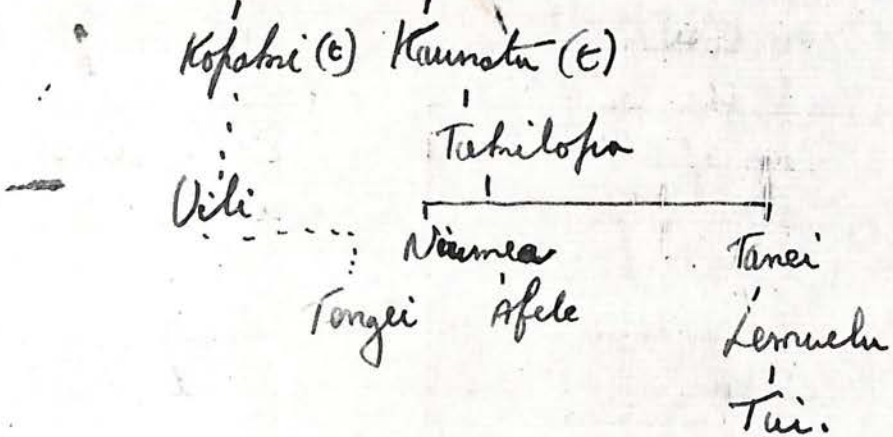 Kopatri (t) Kaunatu (t)
Tahilofa
Vili
Niumea Tanei
Tongei Afele
Lemuelu
Tui.